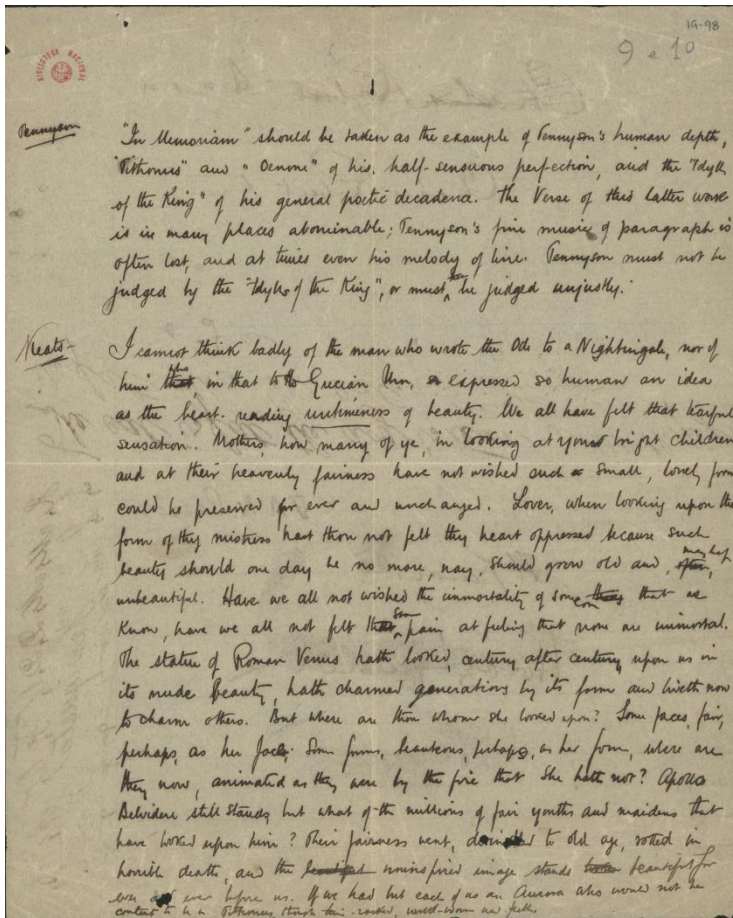 19-98
9 e 10
BIBLIOTECA NACIONAL
1
Tennyson
"In Memoriam" should be taken as the example of Tennyson's human depth,
"Tithonus" and "Oenone" of his half-sensuous perfection, and the "Idylls
of the King" of his general poetic decadence. The Verse of this latter work
is in many places abominable; Tennyson's fine music of paragraph is
often lost, and at times even his melody of line. Tennyson must not be
judged by the "Idylls of the King", or must be judged unjustly.
Keats-
I cannot think badly of the man who wrote the Ode to a Nightingale, nor of
him who in that to the Grecian Urn, expressed so human an idea
as the heart-rending untimeness of beauty. We all have felt that tearful
sensation. Mothers, how many of ye, in looking at your bright children
and at their heavenly fairness have not wished such small, lovely form
could be preserved for ever and unchanged. Lover, when looking upon the
form of thy mistress hast thou not felt thy heart oppressed because such
beauty should one day be no more, nay, should grow old and, may hap,
unbeautiful. Have we all not wished the immortality of some that as
know, have we all not felt pain at feeling that none are immortal.
The statue of Roman Venus hath looked, century after century, upon us in
its nude beauty, hath charmed generations by its form and liveth now
to charm others. But where are those whom she looked upon? Some faces, fair,
perhaps, as her face; Some forms, beauteous, perhaps, as her form, where are
they now, animated as they were by the fire that she hath not? Apollo
Belvidere still stands but what of the millions of fair youths and maidens that
have looked upon him? Their fairness went, to old age, rotted in
horrible death, and the uninspired image stands beautiful for
ever and ever before us. If we had but each of us an Aurora who would not be
content to be a Tithonus, though